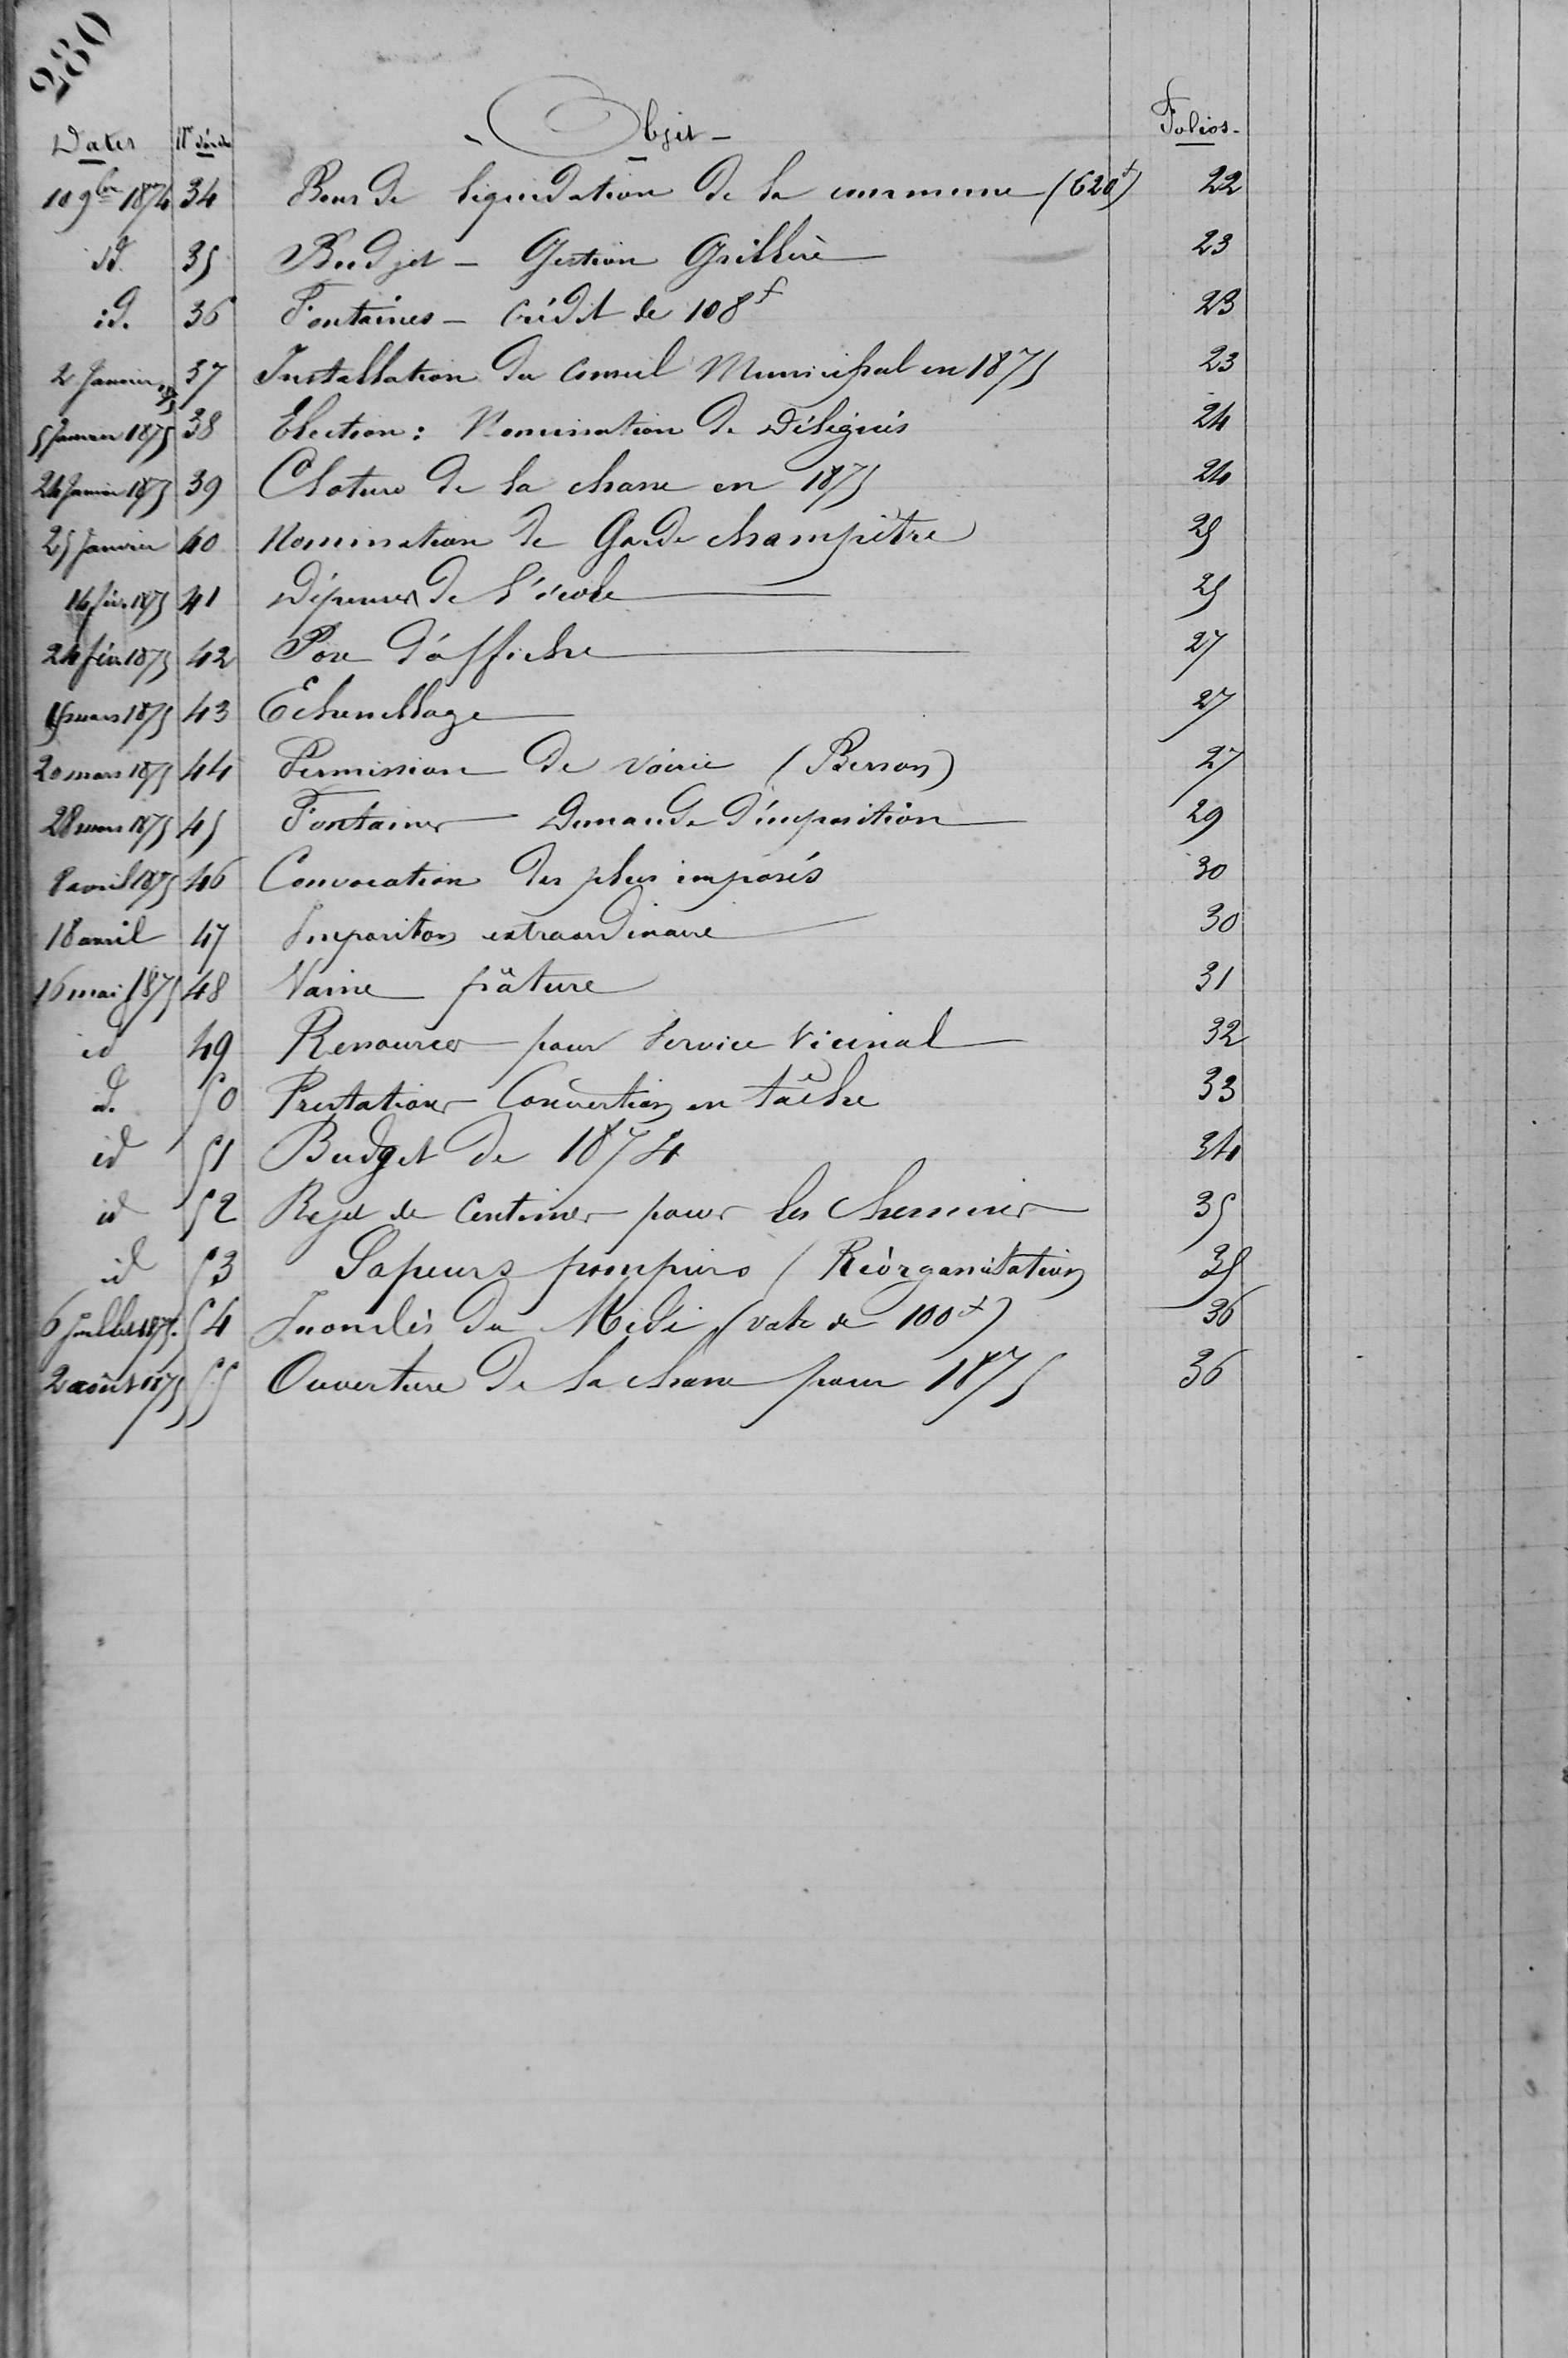 280
Dates N° d'ordre Objet - Folios.
10 9bre 1874 34 Bons de liquidation de la commune (620f) 22
id. 35 Budjet - Gestion Grillère 23
id. 36 Fontaines - Crédit de 108f 23
2 Janvier 37 Installation du Conseil Municipal en 1875 23
5 Janvier 1875 38 Election : Nomination de Délégués 24
24 Janvier 1875 39 Cloture de la chasse en 1875 24
25 Janvier 40 Nomination de Garde champêtre 25
14 fév. 1875 41 Dépenses de l'école 25
24 fév 1875 42 Pose d'affiche 27
15 mars 1875 43 Echenillage 27
20 mars 1875 44 Permission de voirie (Berson) 27
28 mars 1875 45 Fontaines Demande d'imposition 29
8 avril 1875 46 Convocation des plus imposés 30
18 avril 47 Imposition extraordinaire 30
16 mai 1875 48 Vaine pâture 31
id 49 Ressources pour Service Vicinal 32
id. 50 Prestations Convertion en tâche 33
id 51 Budget de 1874 34
id 52 Rejet de Centimes pour les Chemins 35
id 53 Sapeurs pompiers (Réorganisation 35
6 Juillet 1875. 54 Inondés du Midi (vote de 100f) 36
2 août 1875 55 Ouverture de la chasse pour 1875 36